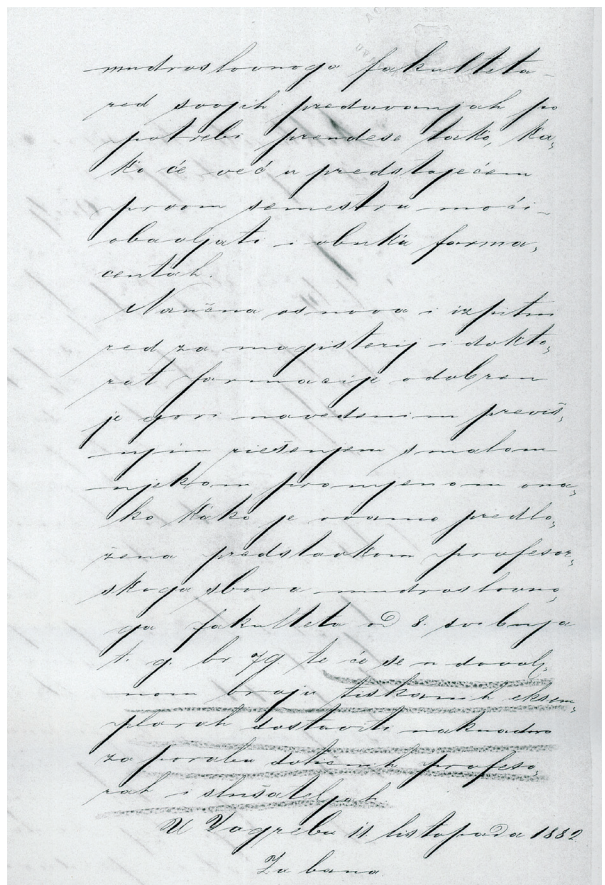 mudroslovnoga fakulteta
red svojih predavanjah po
potrebi preudesi tako, ka,
ko će već u predstojećem
prvom semestru moći
obavljati i obuka farma,
ceutah.
Naučna osnova i izpitni
red za magisterij i dokto,
rat farmacije odobren
je gori navedenim previš,
njim riešenjem s malom
njekom promjenom ona,
ko kako je ovamo predlo,
žena predstavkom profesor,
skoga sbora mudroslovno,
ga fakulteta od 8. svibnja
t. g. br 79 te će se u dovolj,
nom broju tiskanih eksem,
plarah dostaviti naknadno
za porabu dotičnih profeso,
rah i slušateljah.
U Zagrebu 11 listopada 1882
Za bana